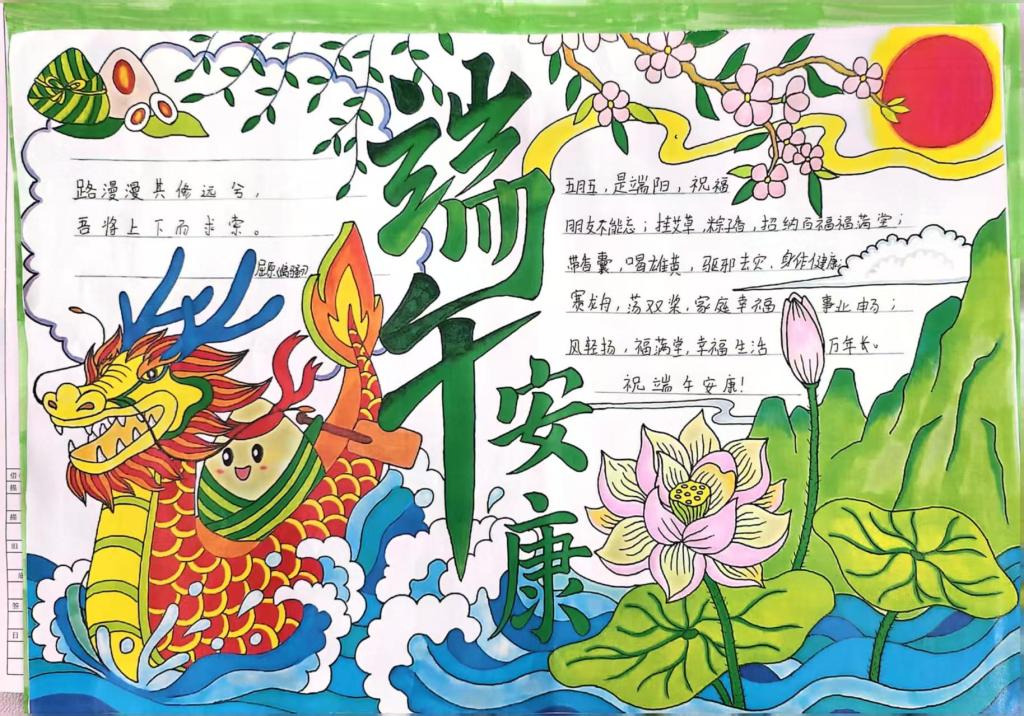 端午
安康
路漫漫其修远兮，
吾将上下而求索。
屈原《离骚》
五月五，是端阳，祝福
朋友不能忘；挂艾草，粽子香，招纳百福福满堂；
带香囊，喝雄黄，驱邪去灾，身体健康；
赛龙舟，荡双桨，家庭幸福 事业畅；
风轻扬，福满堂，幸福生活 万年长。
祝端午安康！